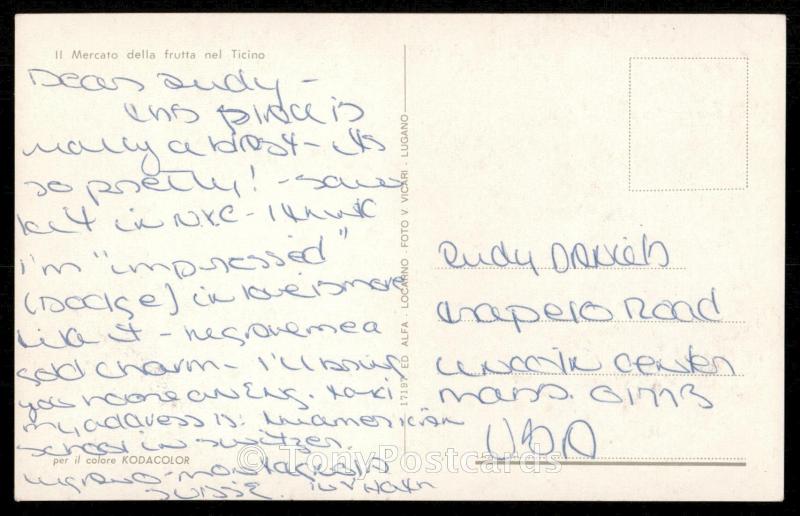 Il Mercato della frutta nel Ticino
Dear Rudy -
this place is
really a blast - its
so pretty! - saw
kit in N.Y.C - I think
I'm "impressed"
(Dodge) in love is more
like it - he gave me a
gold charm - I'll bring
you home an Eng. taxi
my address is: the american
school in switzer.
per il colore KODACOLOR
Lugano - montagnola
SUISSE.
17197 ED ALFA - LOCARNO - FOTO V. VICARI - LUGANO
Rudy Daniels
Road
Lincoln Center
Mass. 01773
USA
© TonyPostcards